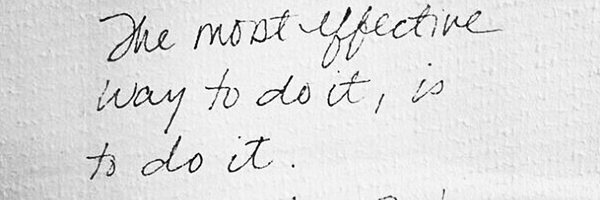 The most effective
way to do it, is
to do it.